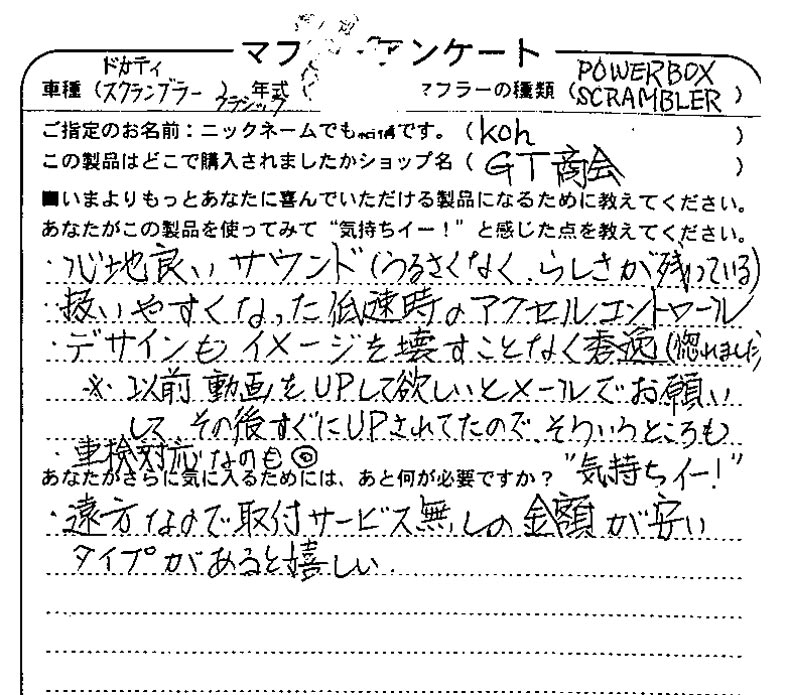 マフ アンケート
車種（ドカティ スクランブラー クラシック）年式（ マフラーの種類（POWERBOX SCRAMBLER）
ご指定のお名前：ニックネームでも結構です。（koh ）
この製品はどこで購入されましたかショップ名（GT商会 ）
■いまよりもっとあなたに喜んでいただける製品になるために教えてください。
あなたがこの製品を使ってみて“気持ちイー！”と感じた点を教えてください。
・心地良いサウンド（うるさくなく、らしさが残っている）
・扱いやすくなった低速時のアクセルコントロール
・デザインもイメージを壊すことなく秀逸（惚れました）
※・以前動画をUPして欲しいとメールでお願い
して、その後すぐにUPされてたので、そういうところも
・車検対応なのも◎ “気持ちイー！”
あなたがさらに気に入るためには、あと何が必要ですか？
・遠方なので取付サービス無しの金額が安い
タイプがあると嬉しい．